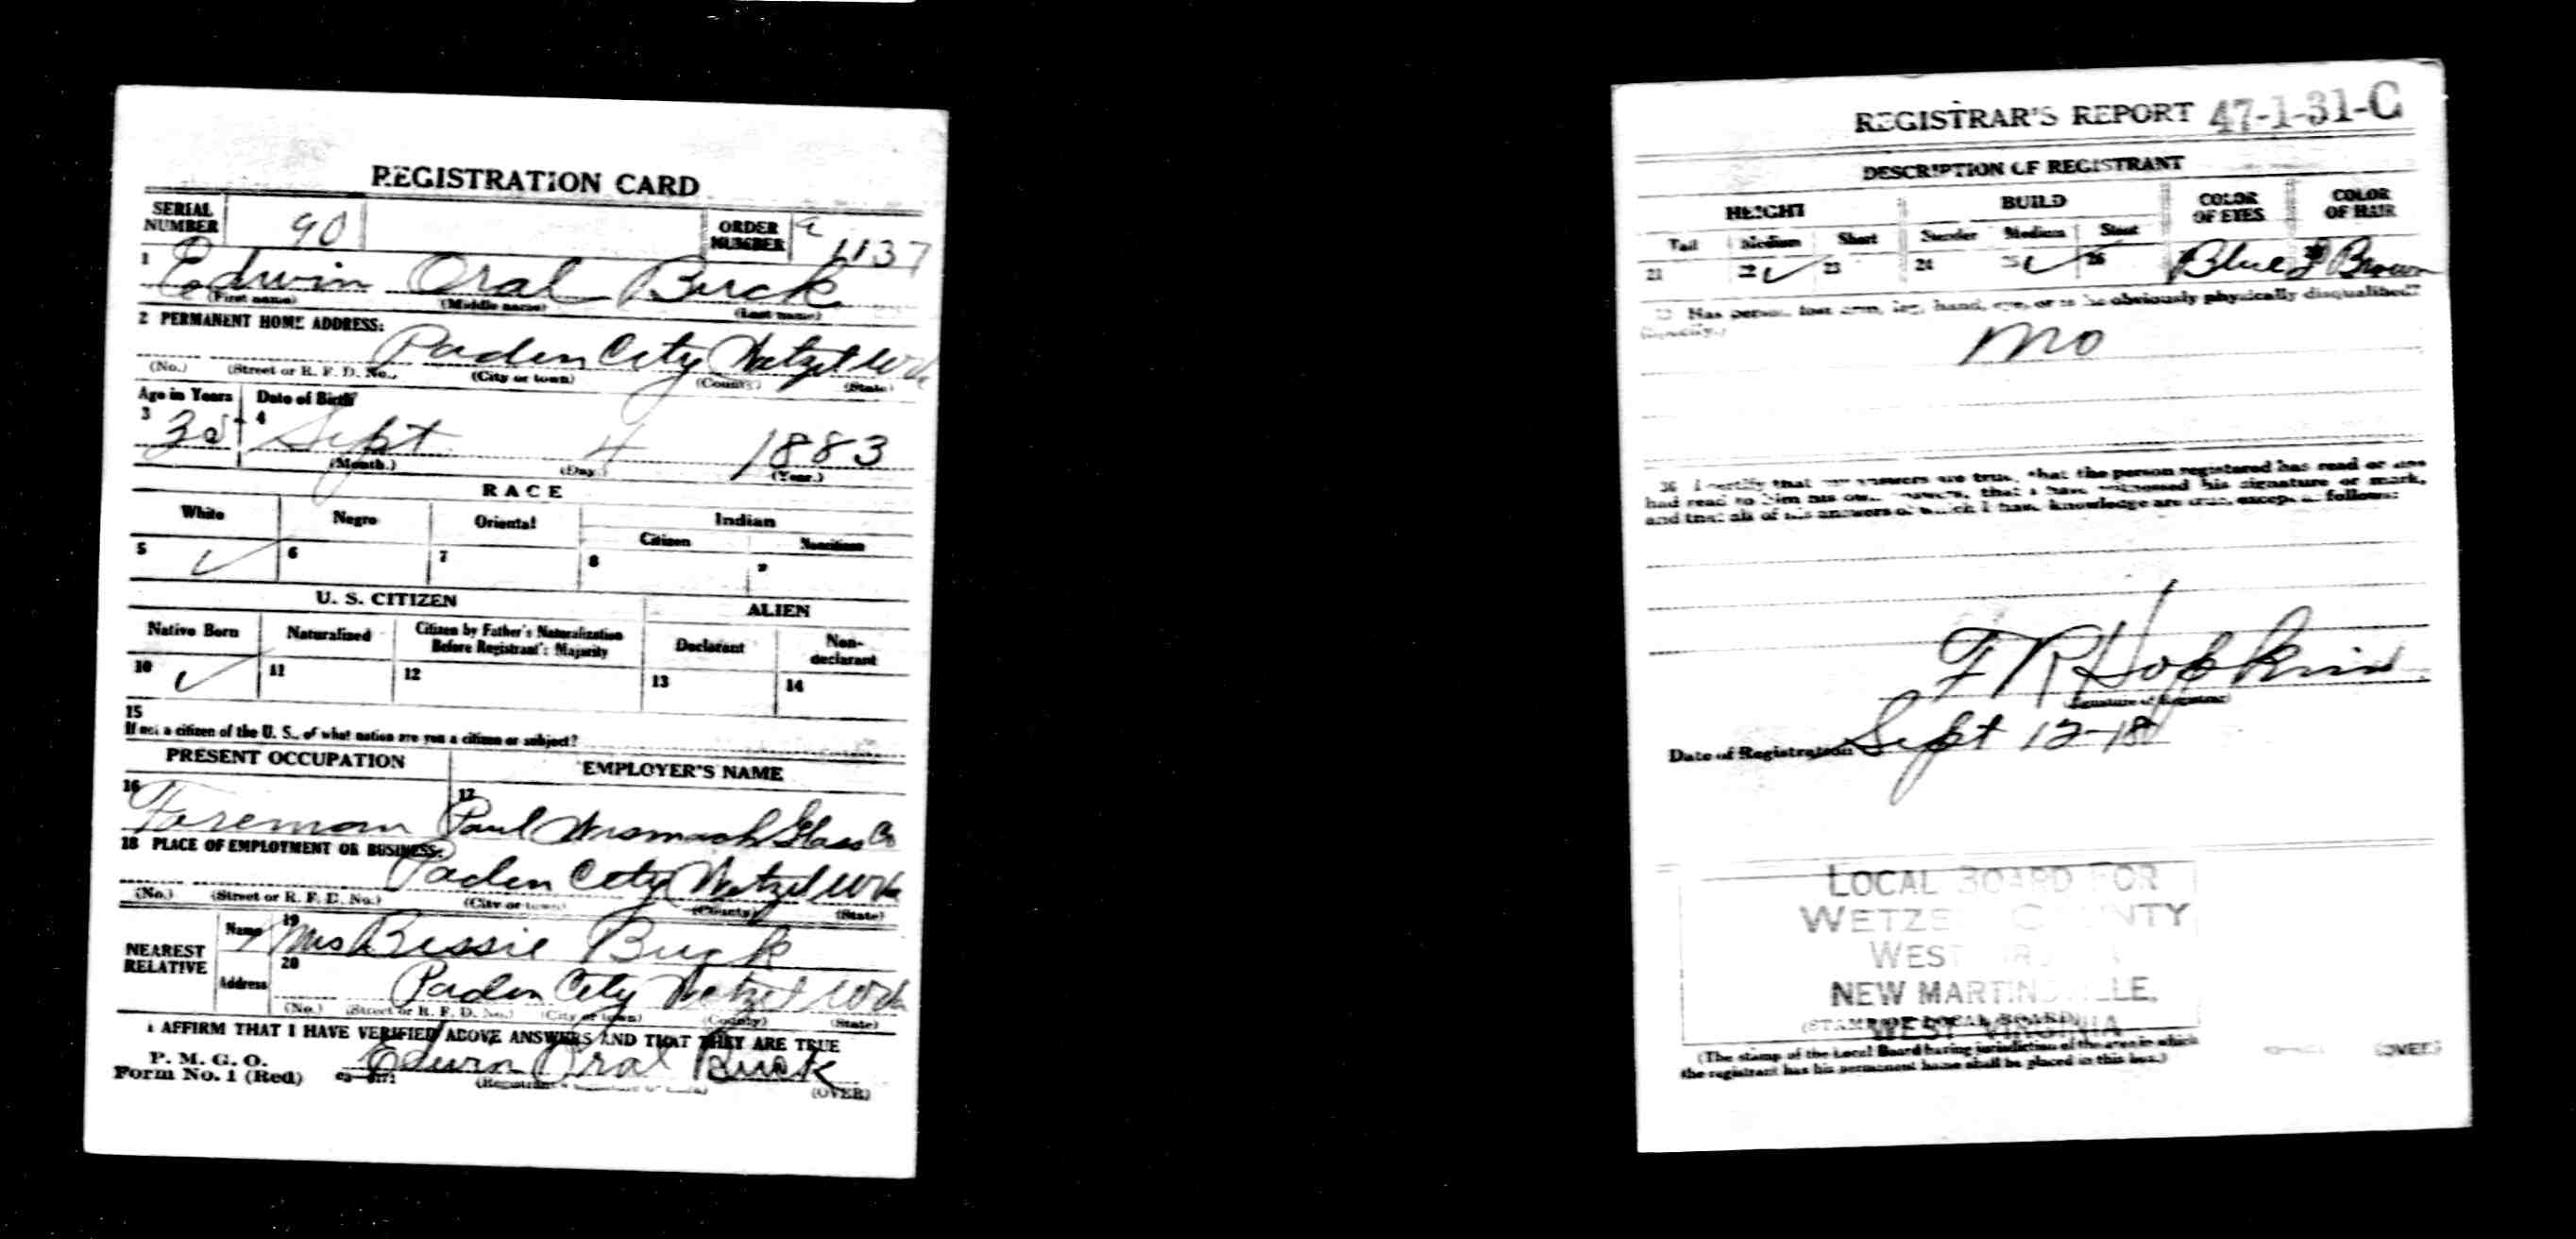 REGISTRATION CARD
SERIAL NUMBER 90 ORDER NUMBER a 1137
1 Edwin Oral Buck
(First name) (Middle name) (Last name)
2 PERMANENT HOME ADDRESS:
Paden City Wetzel W Va
(No.) (Street or R. F. D. No.) (City or town) (County) (State)
Age in Years Date of Birth
3 35 4 Sept 4 1883
(Month.) (Day.) (Year.)
RACE
White Negro Oriental Indian
Citizen Noncitizen
5 ✓ 6 7 8 9
U. S. CITIZEN ALIEN
Native Born Naturalized Citizen by Father's Naturalization Before Registrant's Majority Declarant Non-declarant
10 ✓ 11 12 13 14
15
If not a citizen of the U. S., of what nation are you a citizen or subject?
PRESENT OCCUPATION EMPLOYER'S NAME
16 Foreman 17 Paul Wismach Glass Co
18 PLACE OF EMPLOYMENT OR BUSINESS:
Paden City Wetzel W Va
(No.) (Street or R. F. D. No.) (City or town) (County) (State)
NEAREST RELATIVE Name 19 Mrs Bessie Buck
Address 20 Paden City Wetzel W Va
(No.) (Street or R. F. D. No.) (City or town) (County) (State)
I AFFIRM THAT I HAVE VERIFIED ABOVE ANSWERS AND THAT THEY ARE TRUE
P. M. G. O.
Form No. 1 (Red) Edwin Oral Buck
(OVER)
REGISTRAR'S REPORT 47-1-31-C
DESCRIPTION OF REGISTRANT
HEIGHT BUILD COLOR OF EYES COLOR OF HAIR
Tall Medium Short Slender Medium Stout
21 22 ✓ 23 24 25 ✓ 26 Blue Brown
Has person lost arm, leg, hand, eye, or is he obviously physically disqualified?
(Specify.)
No
30 I certify that my answers are true, that the person registered has read or has
had read to him his own answers, that I have witnessed his signature or mark,
and that all of his answers of which I have knowledge are true, except as follows:
F R Hopkins
(Signature of Registrar)
Date of Registration Sept 12-18
LOCAL BOARD FOR
WETZEL COUNTY
WEST VIRGINIA
NEW MARTINSVILLE,
WEST VIRGINIA
(STAMP OF LOCAL BOARD)
(The stamp of the Local Board having jurisdiction of the area in which
the registrant has his permanent home shall be placed in this box.)
(OVER)